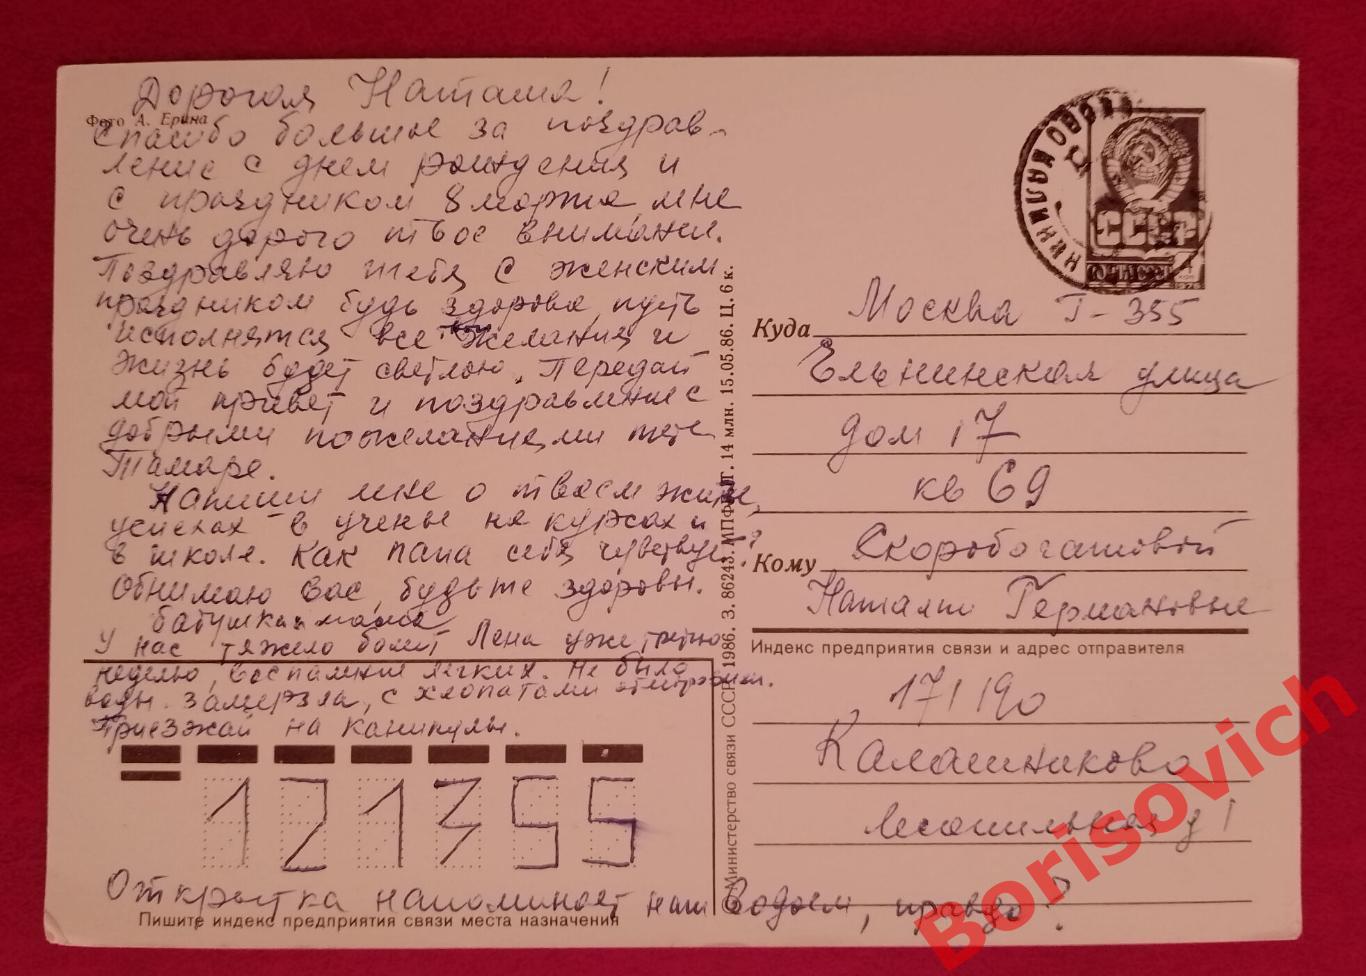 Дорогая Наташа!
Фото А. Ерина
Спасибо большое за поздрав-
ление с днем рождения и
с праздником 8 марта, мне
очень дорого твое внимание.
Поздравляю тебя с женским
праздником будь здорова, пусть
исполнятся все твои желания и
жизнь будет светлою. Передай
мой привет и поздравление с
добрыми пожеланиями тете
Тамаре.
Напиши мне о твоем житье,
успехах в ученье на курсах и
в школе. Как папа себя чувствует?
Обнимаю Вас, будьте здоровы.
бабушка и мама
У нас тяжело болит Лена уже третью
неделю, воспаление легких. Не было
воды. Замерзла, с хлопотами
Приезжай на каникулы.
121355
Открытка напоминает наш Водоем, правда?
Пишите индекс предприятия связи места назначения
Министерство связи СССР. 1986. З. 86243. МПФГ. 14 млн. 15.05.86. Ц. 6 к.
КАЛАШНИКОВО
СССР
ПОЧТА
4 коп
1976
Куда Москва Г-355
Ельнинская улица
дом 17
кв 69
Кому Скоробогатовой
Наталье Германовне
Индекс предприятия связи и адрес отправителя
171190
Калашниково
Лесопильная д 1
Borisovich